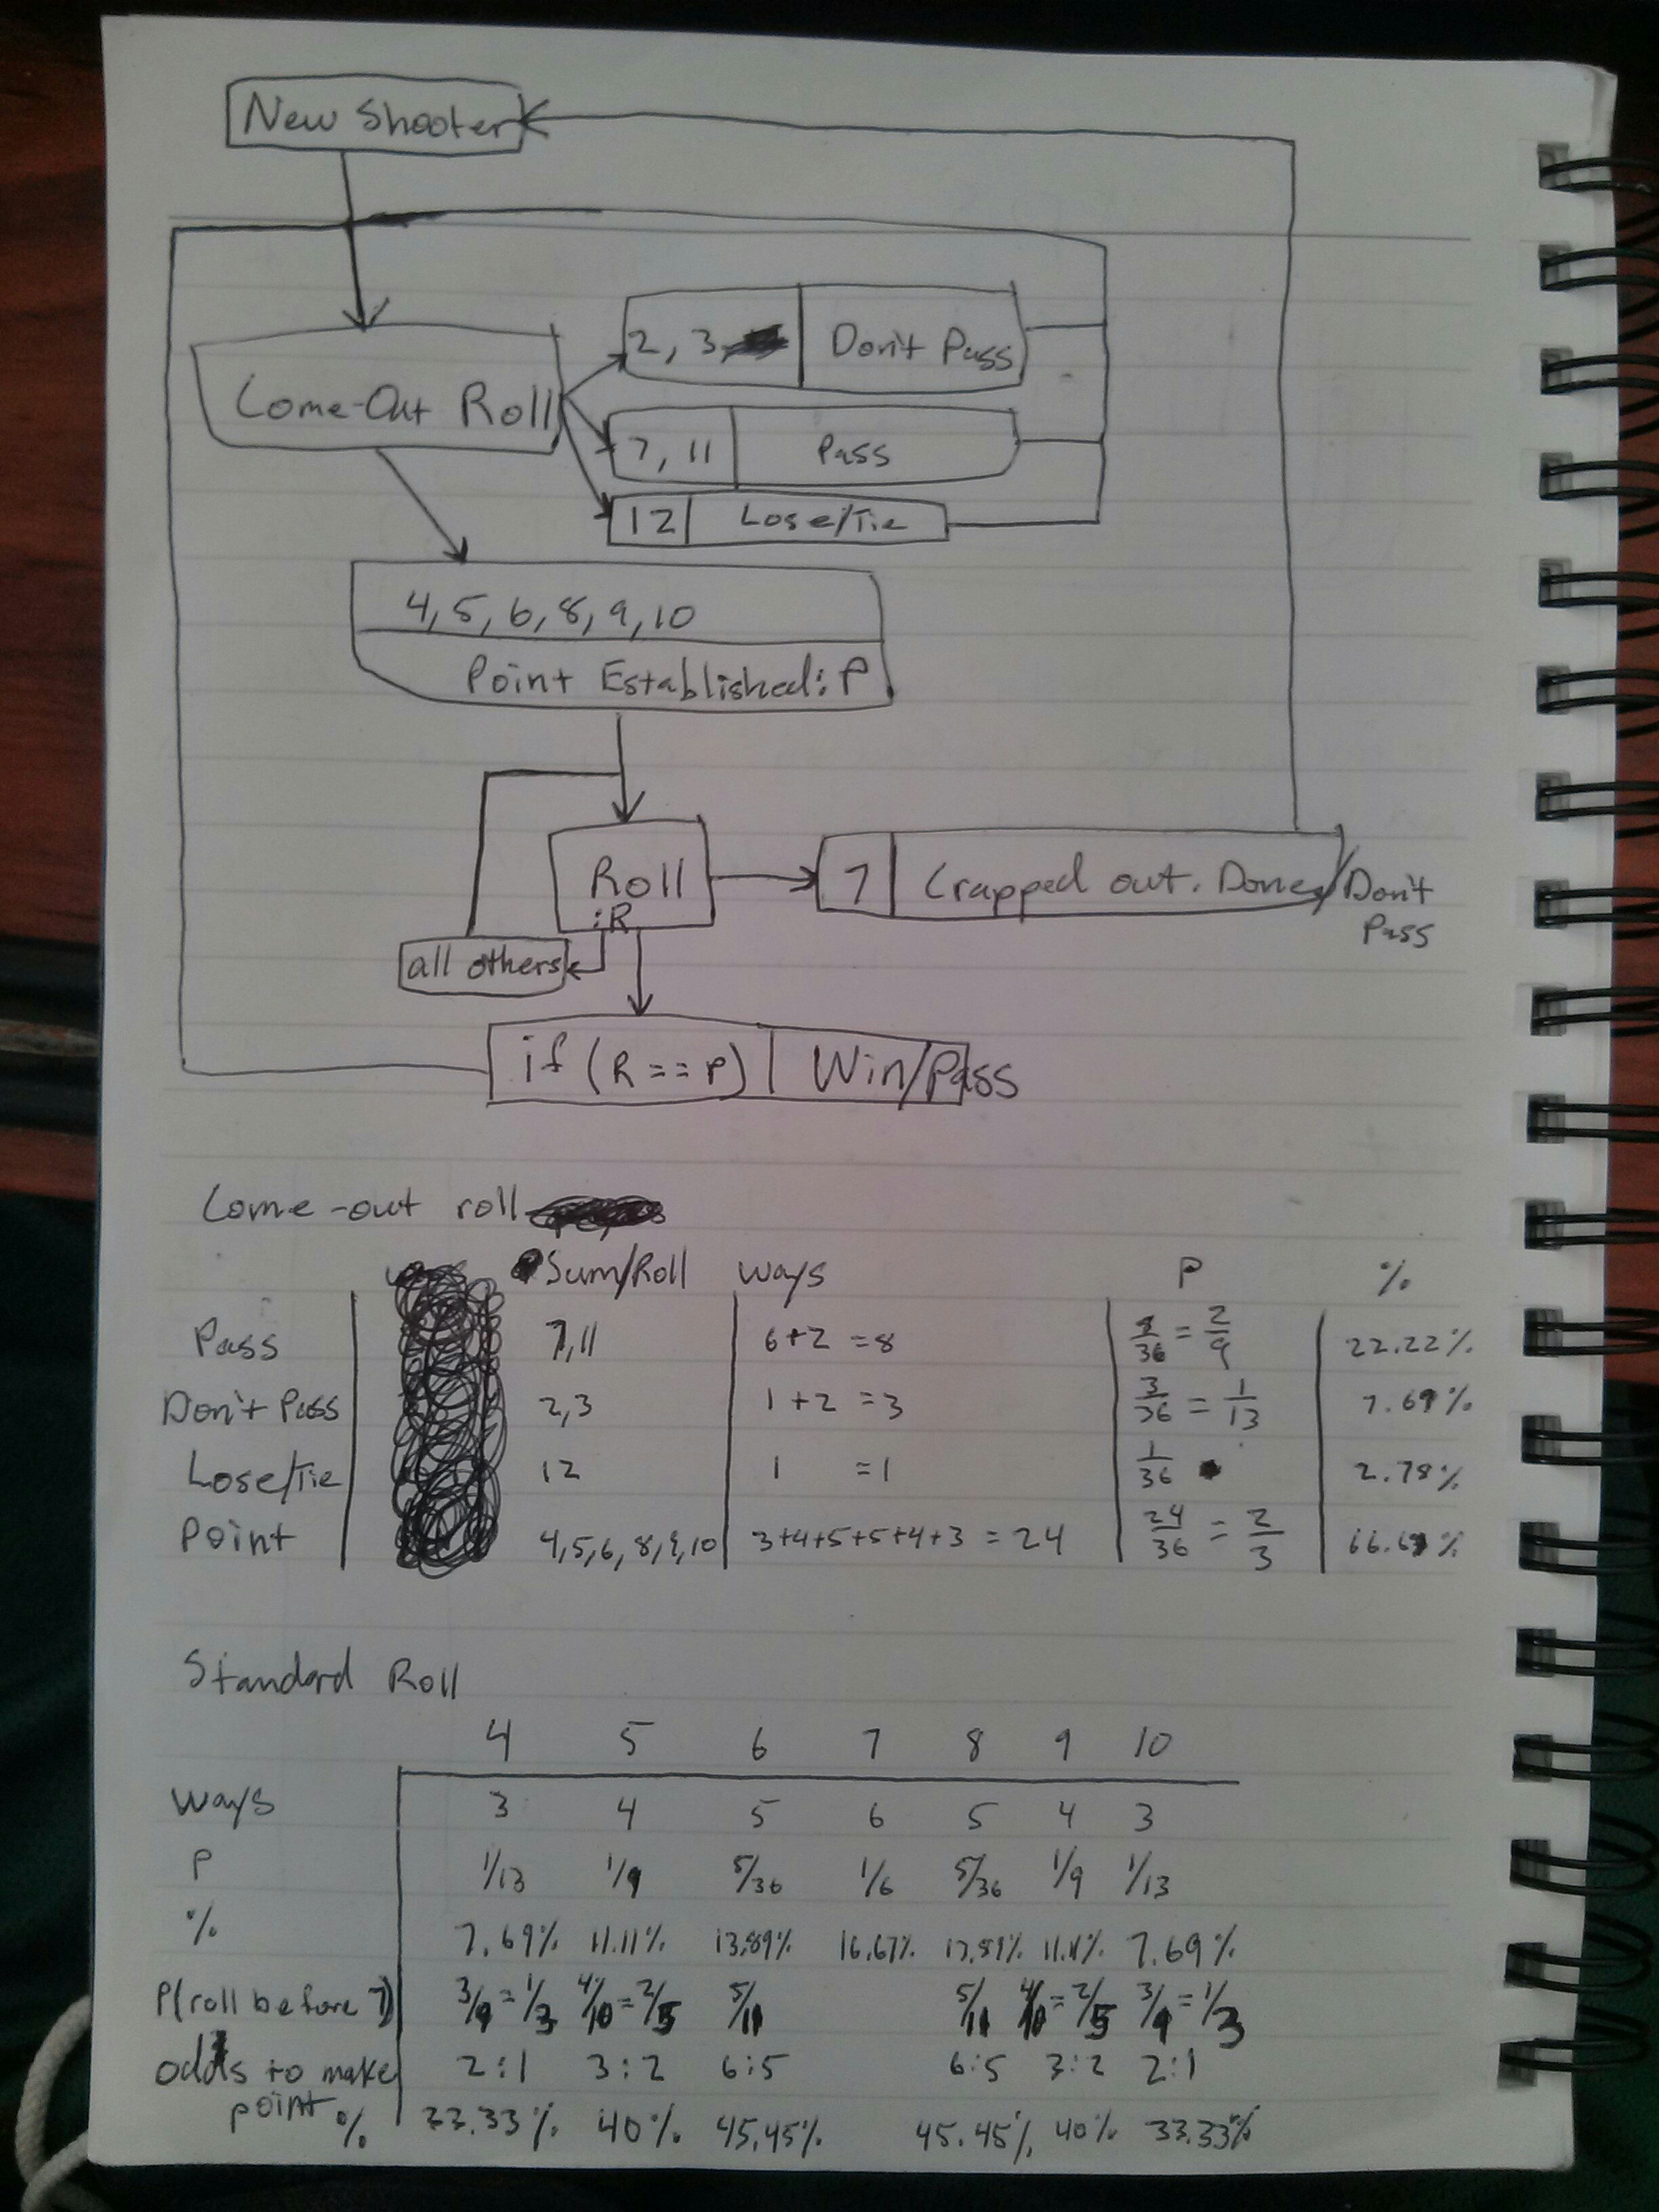 New Shooter
2, 3, | Don't Pass
Come-Out Roll
7, 11 | Pass
12 | Lose/Tie
4, 5, 6, 8, 9, 10
Point Established: P
Roll
:R
7 | Crapped out. Done/Don't
Pass
all others
if (R == P) | Win/Pass
Come-out roll
Sum/Roll Ways P %
Pass 7,11 6+2 =8 8/36 = 2/9 22.22%
Don't Pass 2,3 1+2 =3 3/36 = 1/13 7.69%
Lose/Tie 12 1 =1 1/36 2.78%
Point 4,5,6,8,9,10 3+4+5+5+4+3 = 24 24/36 = 2/3 66.67%
Standard Roll
4 5 6 7 8 9 10
Ways 3 4 5 6 5 4 3
P 1/13 1/9 5/36 1/6 5/36 1/9 1/13
% 7.69% 11.11% 13.89% 16.67% 13.89% 11.11% 7.69%
P(roll before 7) 3/9 = 1/3 4/10 = 2/5 5/11 5/11 4/10 = 2/5 3/9 = 1/3
odds to make 2:1 3:2 6:5 6:5 3:2 2:1
point % 33.33% 40% 45.45% 45.45% 40% 33.33%